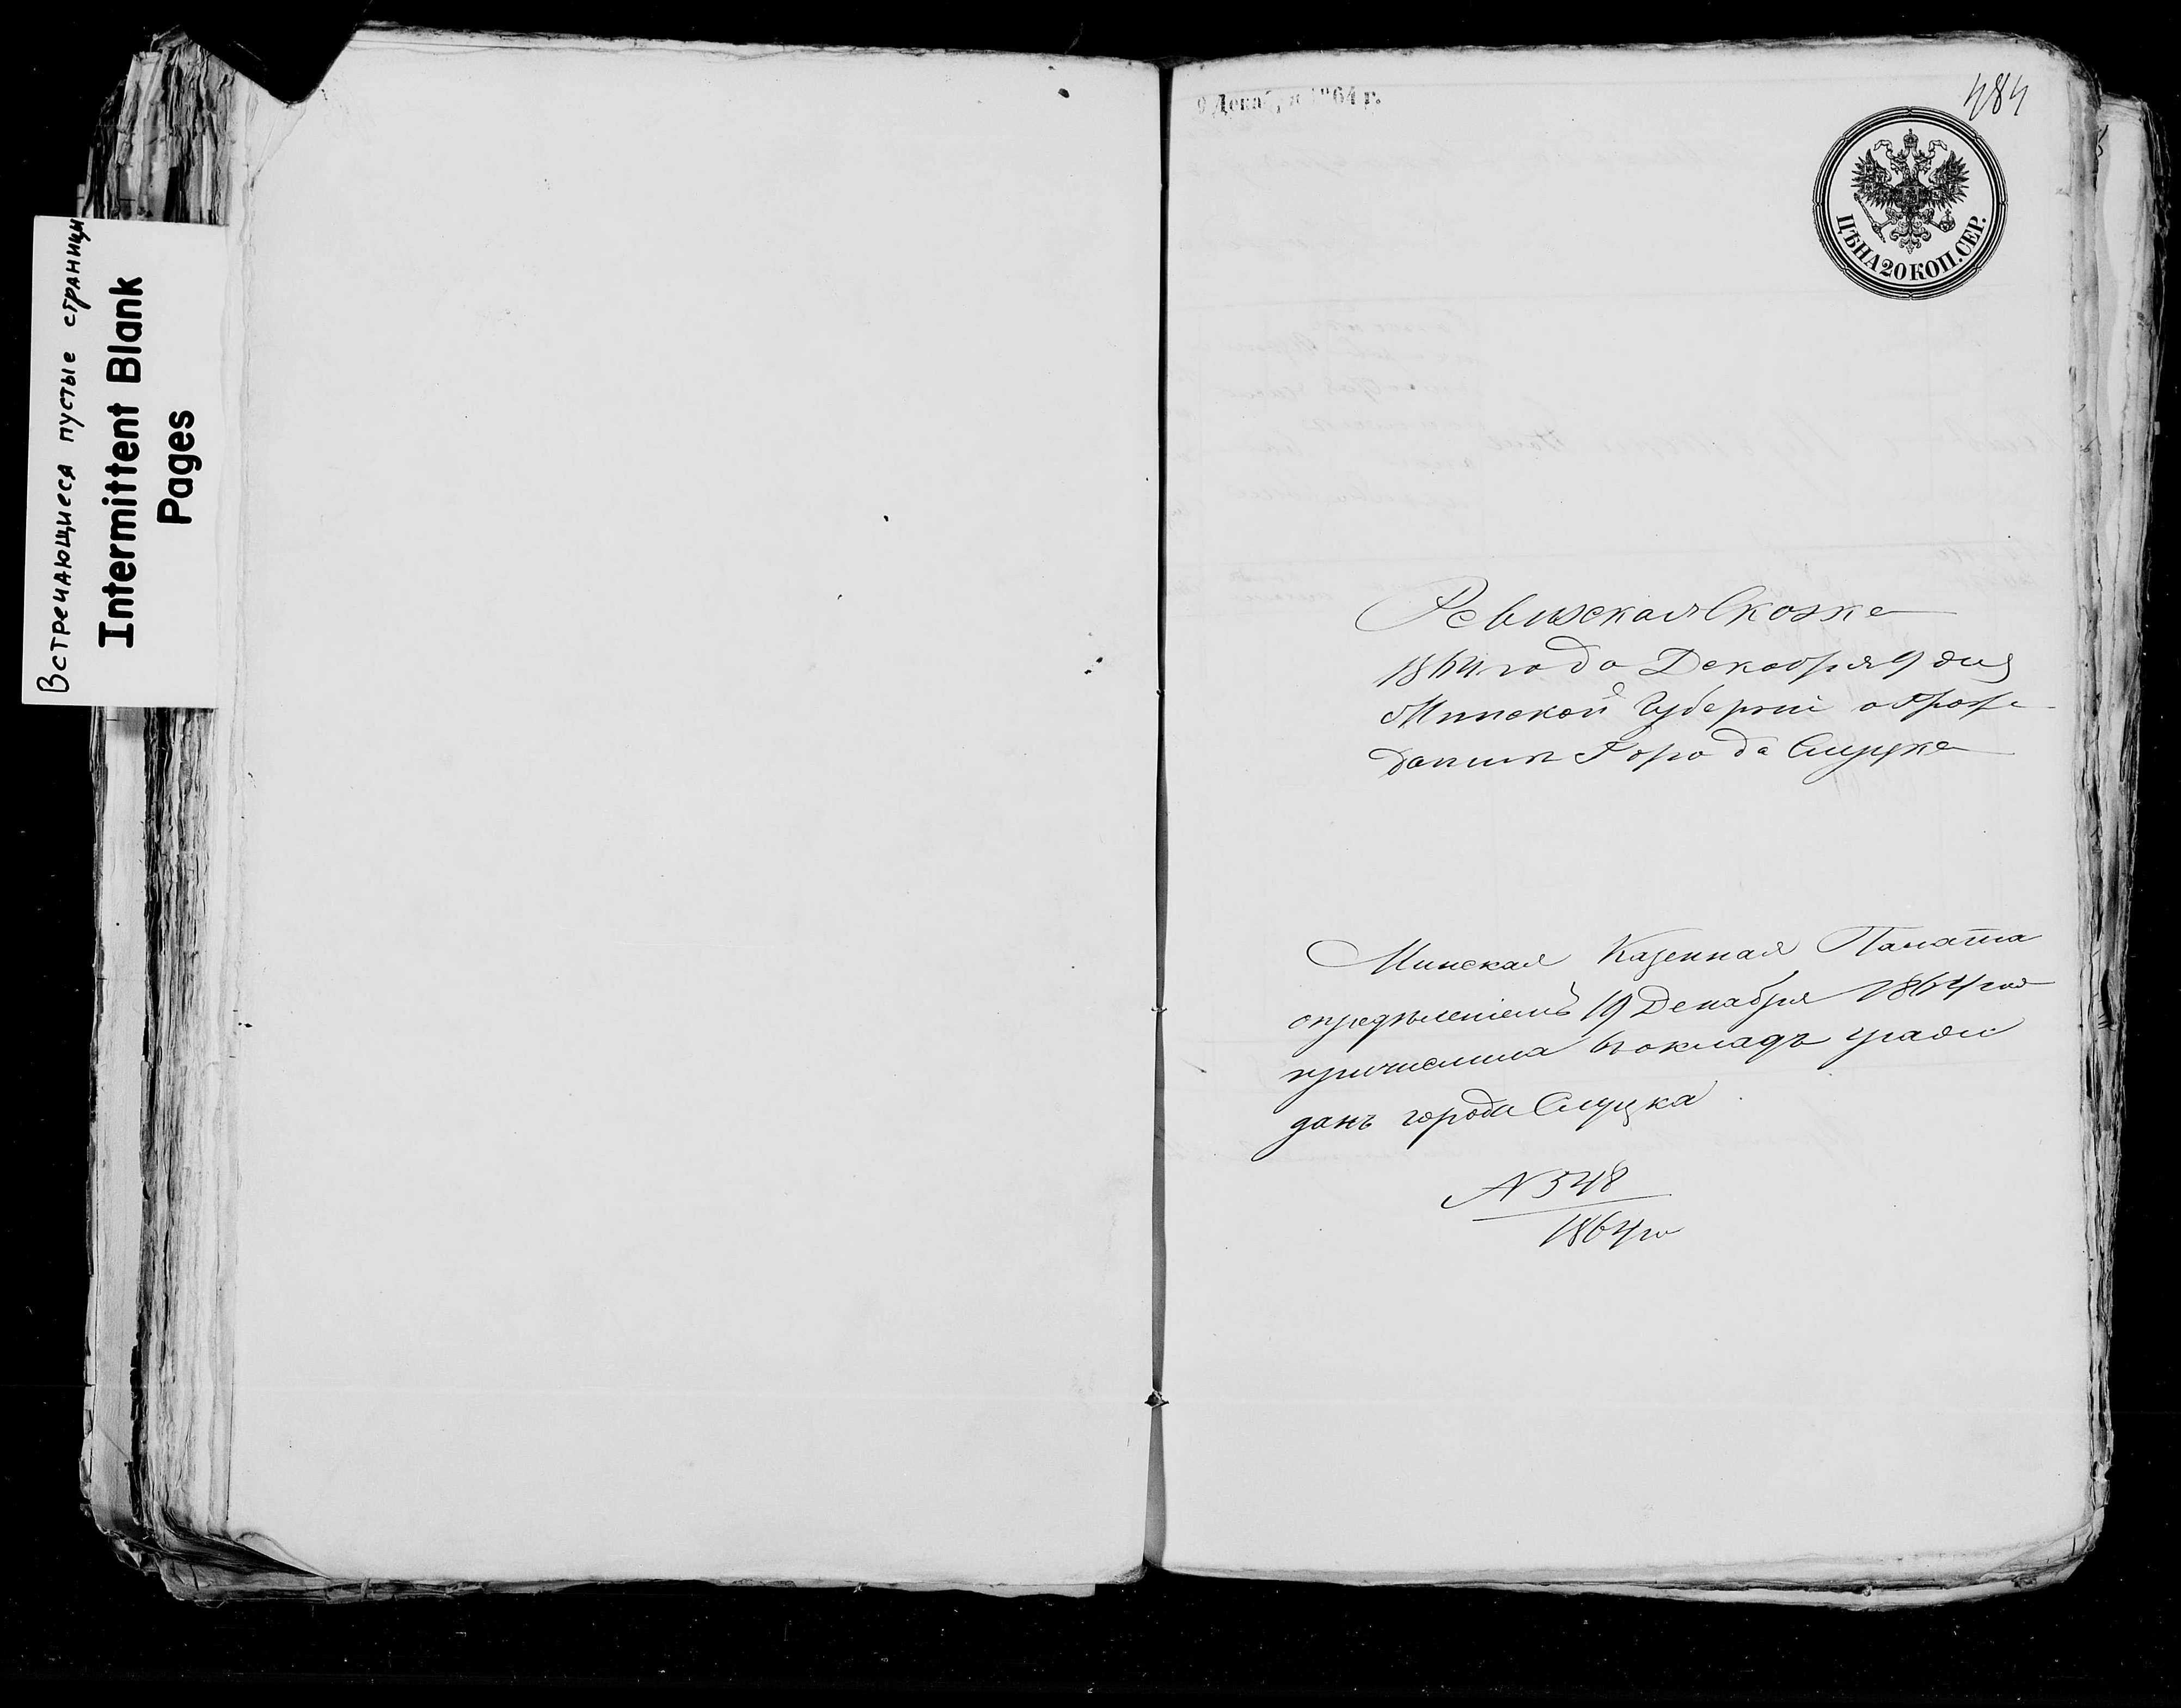 Встречающиеся пустые страницы
Intermittent Blank
Pages
9 Декабря 1864 г.
484
ЦѢНА 20 КОП. СЕР.
Ревижская Скозка
1864 года Декабря 9 дня
Минской Губерніи о Граж
данинѣ Города Слуцка
Минская Казенная Палата
опредѣленіемъ 19 Декабря 1864 год
причислила въ окладъ граж
данъ города Слуцка
N 548
1864 го